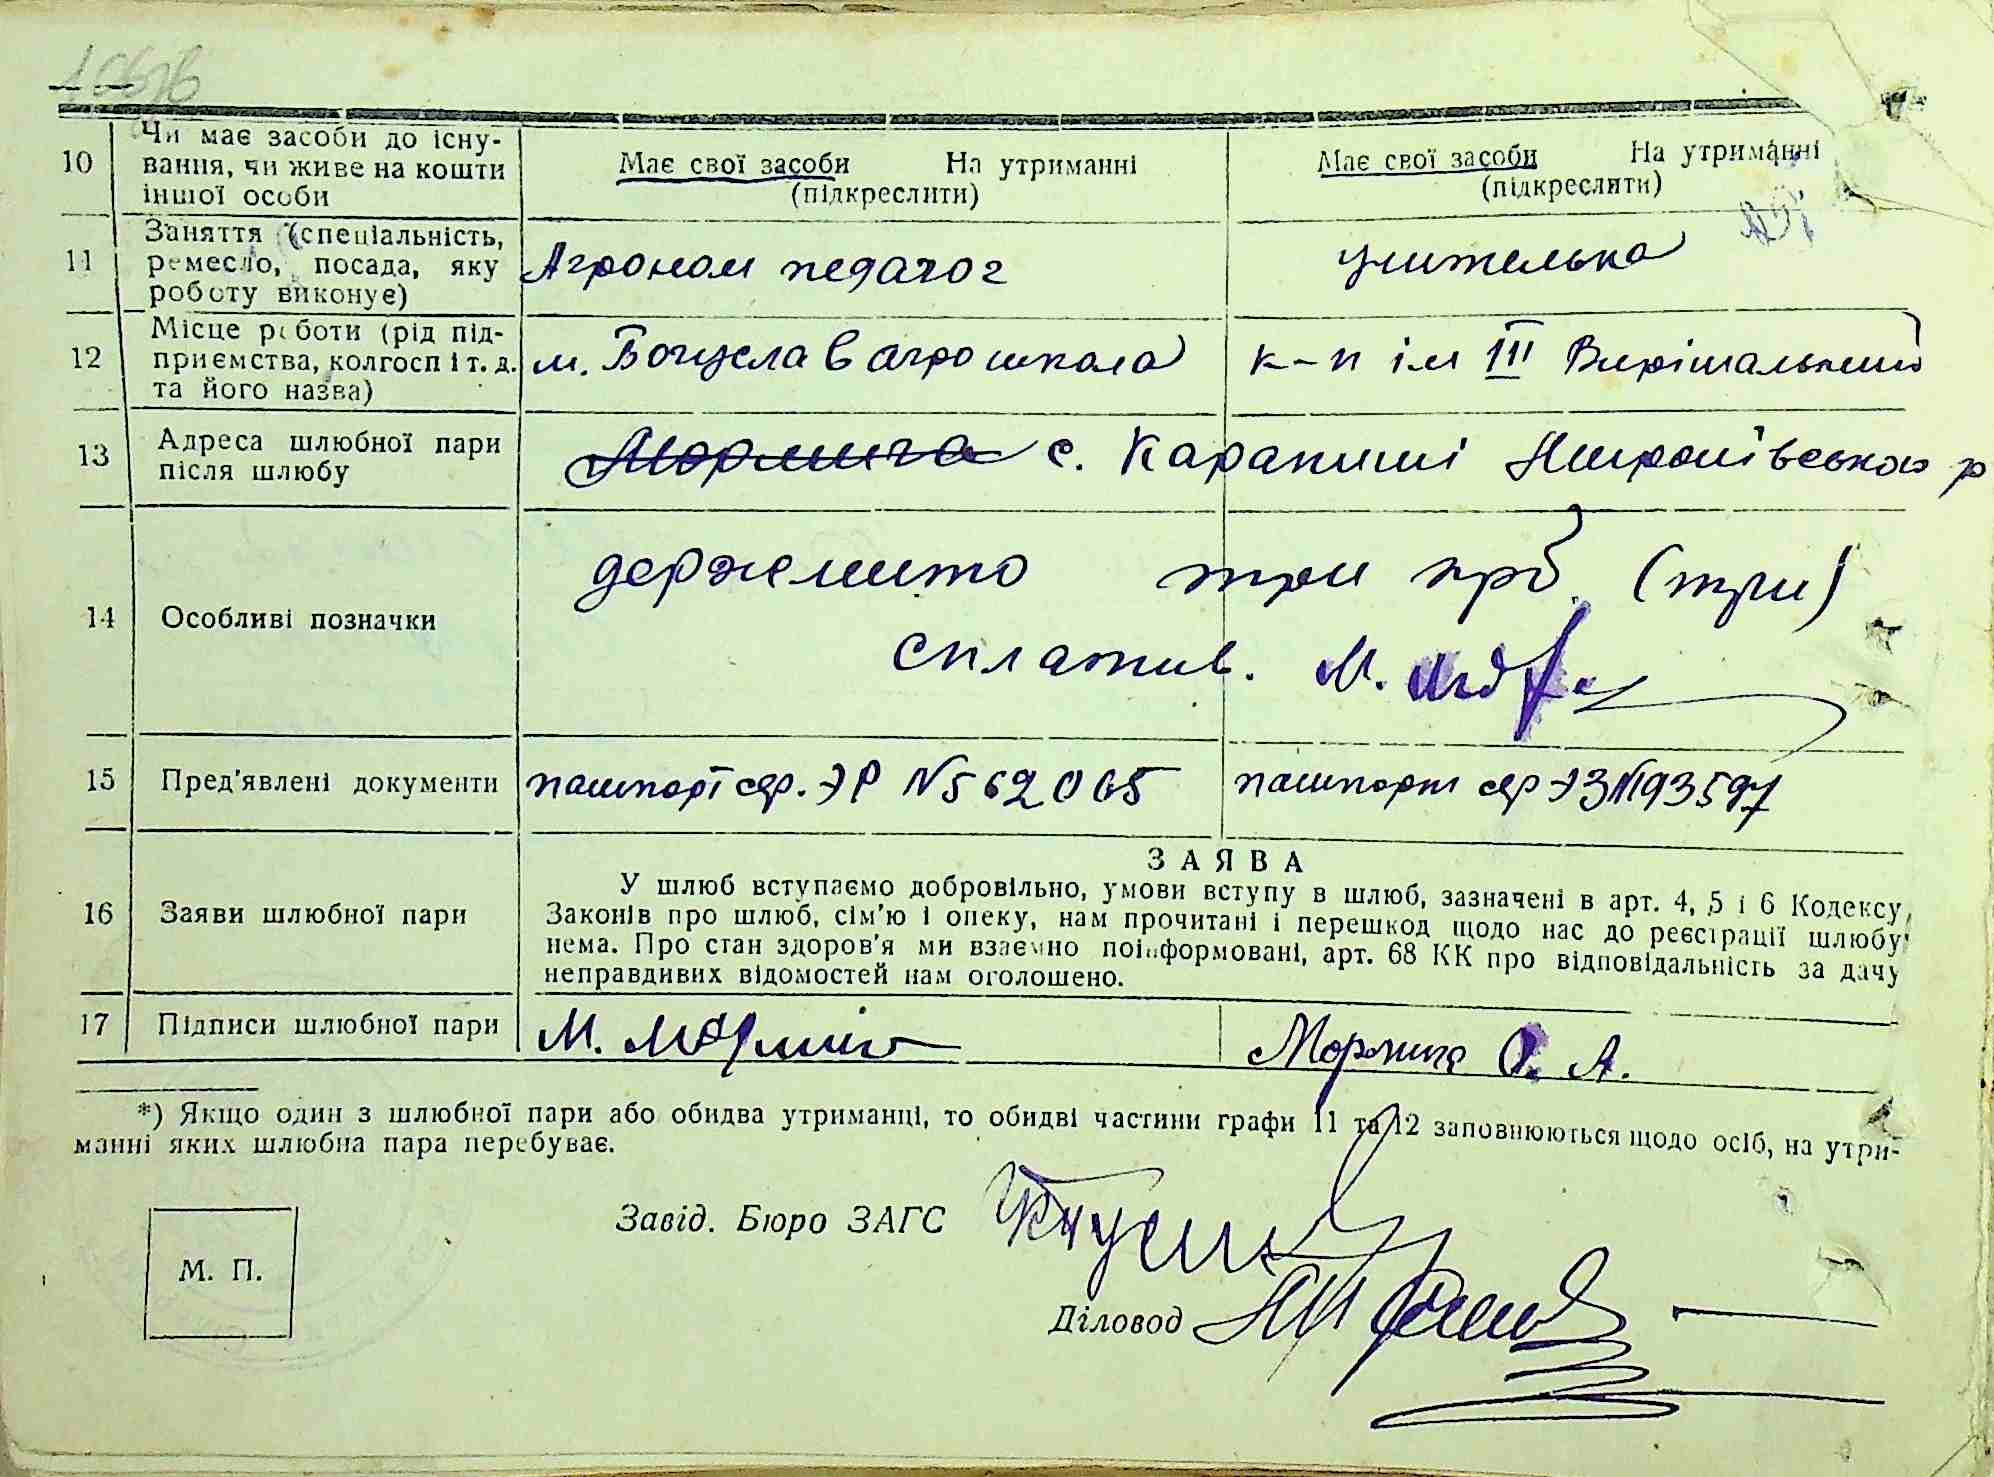 10 Чи має засоби до існу-
вання, чи живе на кошти
іншої особи
Має свої засоби На утриманні
(підкреслити)
Має свої засоби На утриманні
(підкреслити)
11 Заняття (спеціальність,
ремесло, посада, яку
роботу виконує)
Агроном педагог
учителька
12 Місце роботи (рід під-
приємства, колгосп і т. д.
та його назва)
м. Богуслав агрошкола
к-п ім ІІІ Вирішальный
13 Адреса шлюбної пари
після шлюбу
с. Карапиші Миронівського р
14 Особливі позначки
держмито три крб. (три)
сплатив. М.
15 Пред'явлені документи
пашпорт сер. ЭР N562065
пашпорт сер ЭЗ N193597
16 Заяви шлюбної пари
ЗАЯВА
У шлюб вступаємо добровільно, умови вступу в шлюб, зазначені в арт. 4, 5 і 6 Кодексу
Законів про шлюб, сім'ю і опеку, нам прочитані і перешкод щодо нас до реєстрації шлюбу
нема. Про стан здоров'я ми взаємно поінформовані, арт. 68 КК про відповідальність за дачу
неправдивих відомостей нам оголошено.
17 Підписи шлюбної пари
М.
О. А.
*) Якщо один з шлюбної пари або обидва утриманці, то обидві частини графи 11 та 12 заповнюються щодо осіб, на утри-
манні яких шлюбна пара перебуває.
Завід. Бюро ЗАГС
М. П.
Діловод